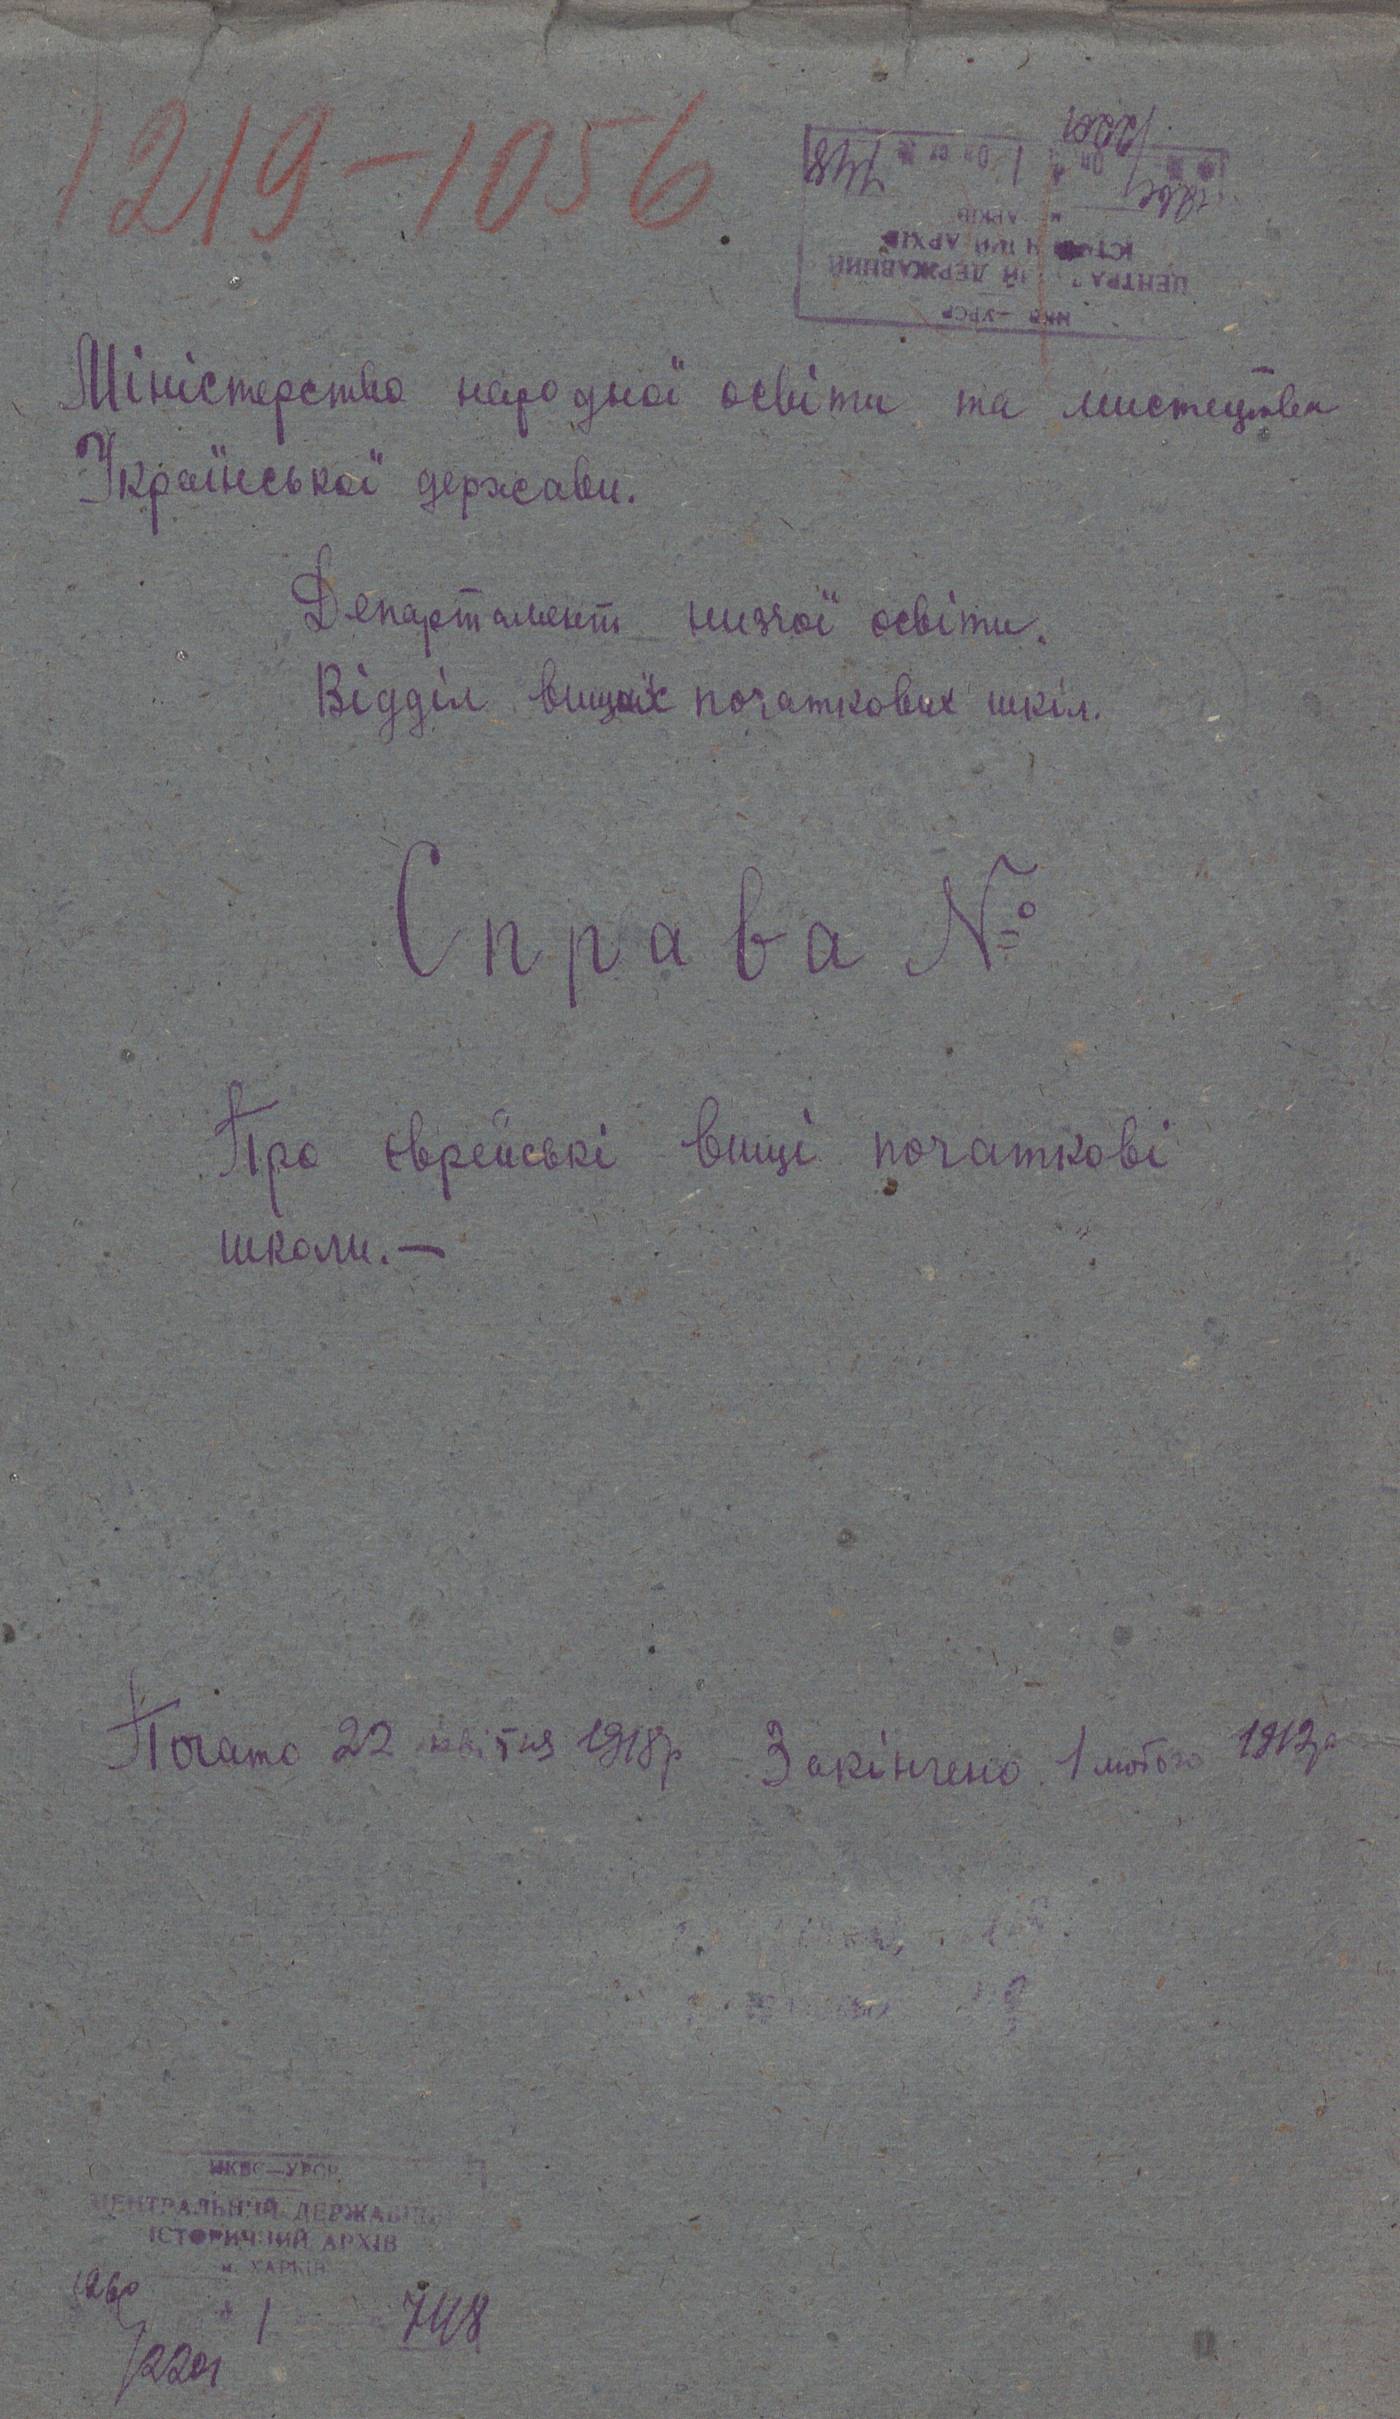 1219-1056
748
НКВС-УРСР
ЦЕНТРАЛЬНИЙ ДЕРЖАВНИЙ
ІСТОРИЧНИЙ АРХІВ
м. ХАРКІВ
Міністерство народної освіти та мистецтва
Української держави.
Департамент низчої освіти.
Відділ вищих початкових шкіл.
Справа №
Про єврейські вищі початкові
школи.—
Почато 22 квітня 1918р Закінчено 1 лютого
НКВС—УРСР
ЦЕНТРАЛЬНИЙ ДЕРЖАВНИЙ
ІСТОРИЧНИЙ АРХІВ
м. ХАРКІВ
1 748
2201